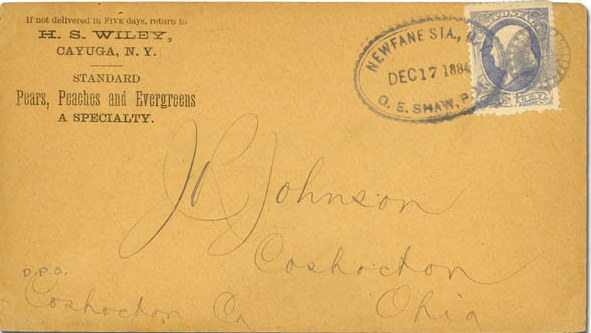 If not delivered in FIVE days, return to
H. S. WILEY,
CAYUGA, N. Y.
STANDARD
Pears, Peaches and Evergreens
A SPECIALTY.
NEWFANE STA., N.Y.
DEC 17 1884
O. E. SHAW, P.M.
J R Johnson
Coshocton
Ohio
D.P.O.
Coshocton Co